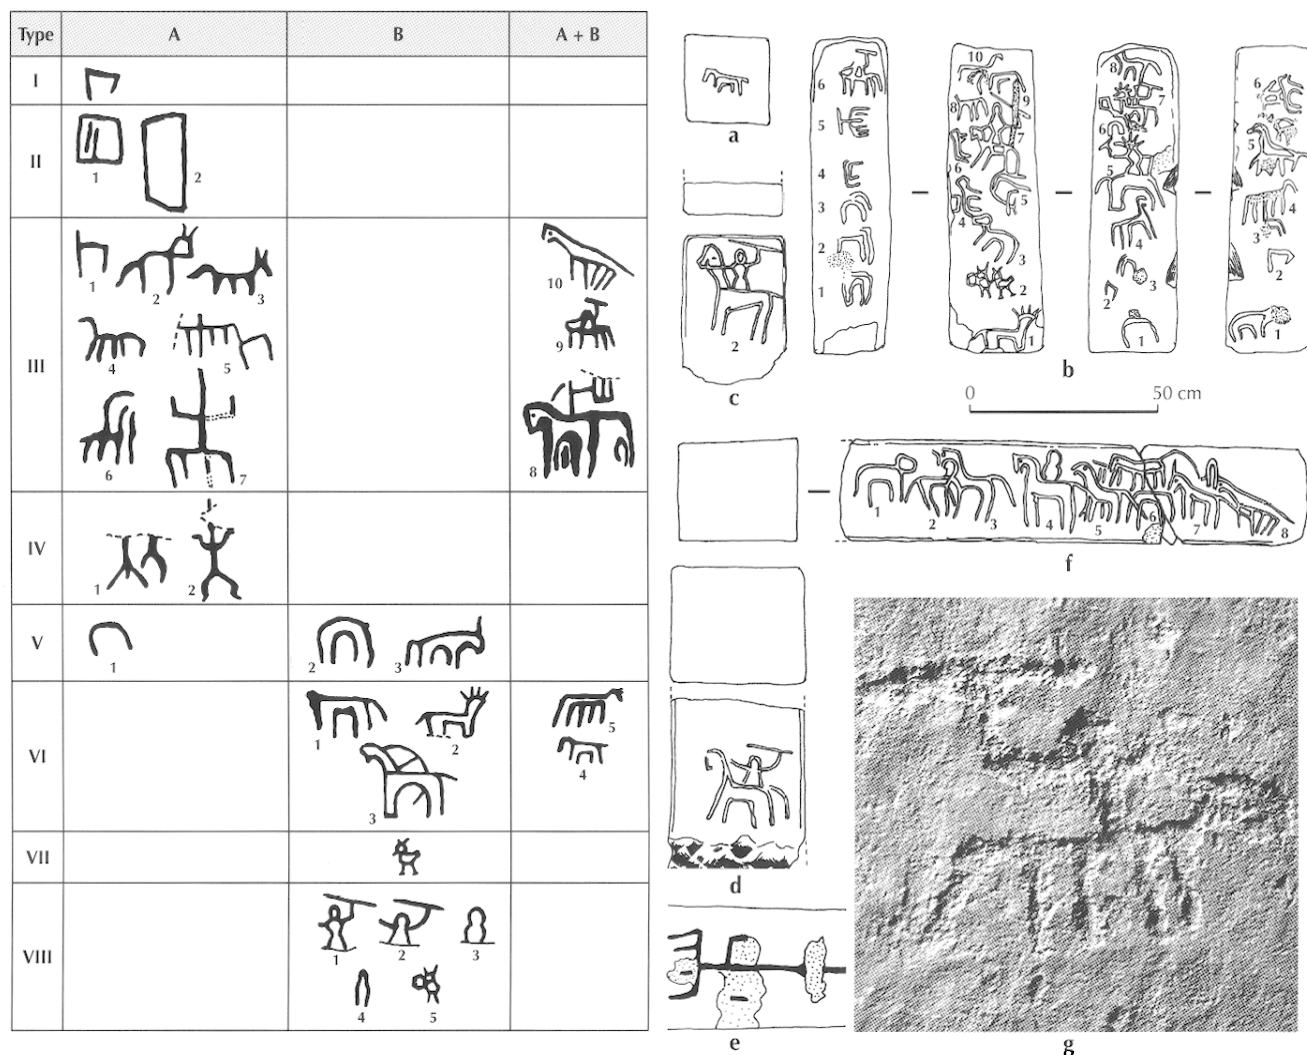 Type A B A + B
I
II
1 2
III
1 2 3 10
4 5 9
6 7 8
IV
1 2
V
1 2 3
VI
1 2 5
4
3
VII
VIII
1 2 3
4 5
a
6
5
4
3
2
1
10
8 9
7
6
5
4
3
2
1
8
7
6
5
4
3
2
1
6
5
4
3
2
1
b
2
c
0 50 cm
1 2 3 4 5 6 7 8
f
d
e
g